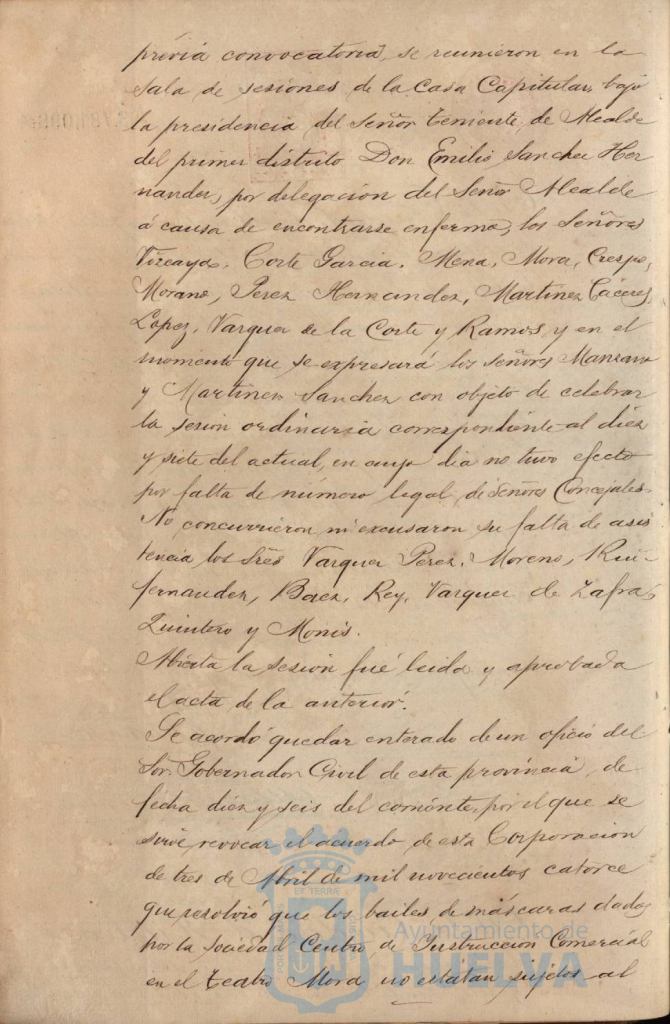 prévia convocatoria, se reunieron en la
Sala de sesiones de la Casa Capitular, bajo
la presidencia del Señor Teniente de Alcalde
del primer distrito Don Emilio Sanchez Her
nandez, por delegación del Señor Alcalde
á causa de encontrarse enfermo, los Señores
Vizcaya, Corte Garcia, Mena, Mora, Crespo,
Morano, Perez Hernandez, Martinez Cáceres,
Lopez, Vazquez de la Corte y Ramos, y en el
momento que se expresará los señores Manzano
y Martinez Sanchez con objeto de celebrar
la sesion ordinaria correspondiente al diez
y siete del actual, en cuyo dia no tuvo efecto
por falta de número legal de Señores Concejales.
No concurrieron ni excusaron su falta de asis
tencia los Sres Vazquez Perez, Moreno, Rui-
fernandez, Baez, Rey, Vazquez de Zafra,
Quintero y Monis.
Abierta la sesion fué leida y aprobada
el acta de la anterior.
Se acordó quedar enterado de un oficio del
Sor. Gobernador Civil de esta provincia, de
fecha diez y seis del corriente, por el que se
sirve revocar el acuerdo de esta Corporacion
de tres de Abril de mil novecientos catorce
que resolvió que los bailes de máscaras dados
por la sociedad Centro de Instruccion Comercial
en el Teatro Mora no estátan sujetos al
Ayuntamiento de
HUELVA